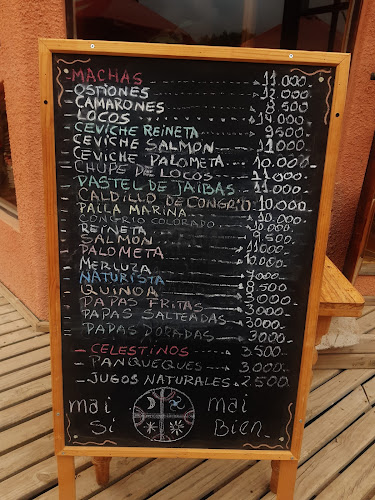 MACHAS 11.000.-
OSTIONES 12.000
CAMARONES 8.500
LOCOS 14.000
CEVICHE REINETA 9500
CEVICHE SALMON 11000
CEVICHE PALOMETA 10.000.-
CHUPE DE LOCOS 11.000
PASTEL DE JAIBAS 11.000
CALDILLO DE CONGRIO 10.000
PAILA MARINA 10.000.
CONGRIO COLORADO 10.000
REINETA 9.500.
SALMON 11000
PALOMETA 10.000
MERLUZA
NATURISTA
QUINOA
PAPAS FRITAS 3000.
PAPAS SALTEADAS 3000
PAPAS DORADAS 3000.
- CELESTINOS 3.500.-
- PANQUEQUES 3.000.-
- JUGOS NATURALES 2.500.
mai mai
Si Bien